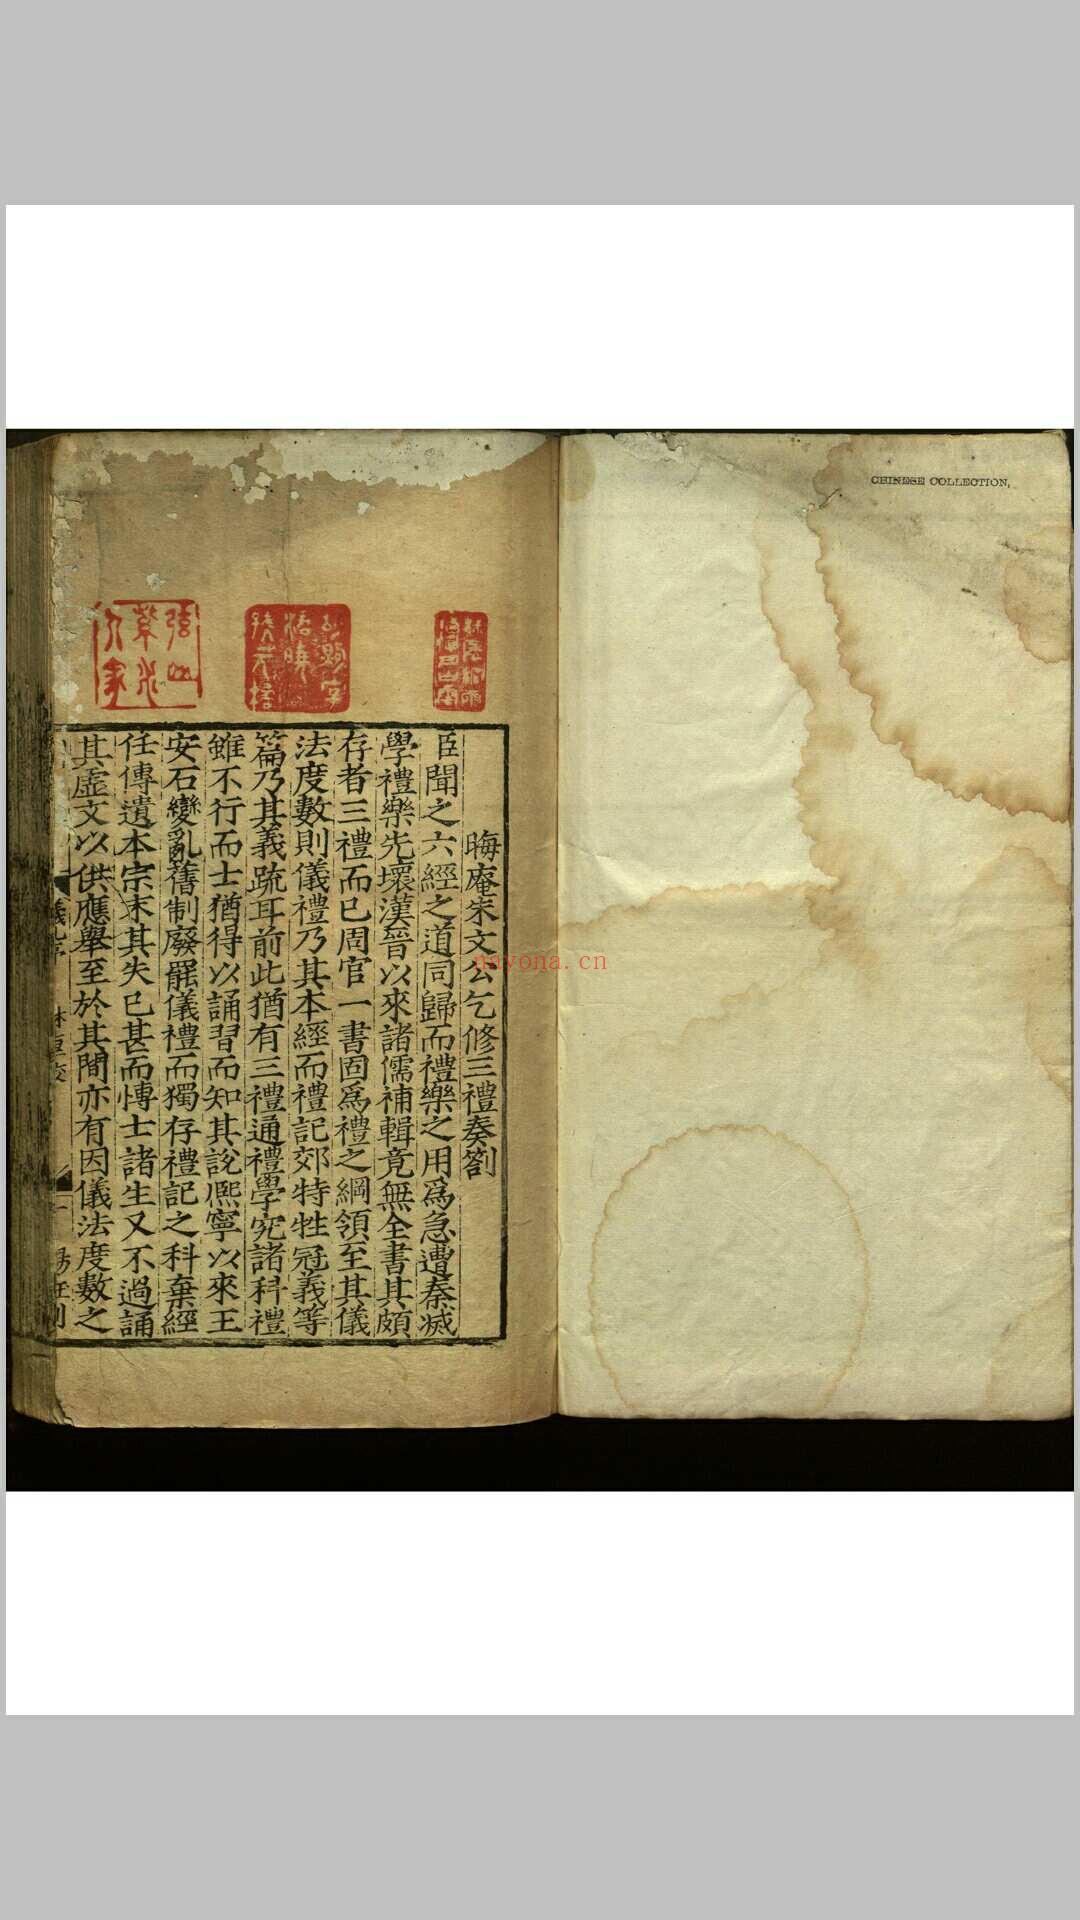 CHINESE COLLECTION,
晦庵朱文公乞修三禮奏劄
臣聞之六經之道同歸而禮樂之用爲急遭秦滅
學禮樂先壞漢晉以來諸儒補輯竟無全書其頗
存者三禮而已周官一書固爲禮之綱領至其儀
法度數則儀禮乃其本經而禮記郊特牲冠義等
篇乃其義疏耳前此猶有三禮通禮學究諸科禮
雖不行而士猶得以誦習而知其說熈寧以來王
安石變亂舊制廢罷儀禮而獨存禮記之科棄經
任傳遺本宗末其失已甚而愽士諸生又不過誦
其虛文以供應舉至於其間亦有因儀法度數之
nayona.cn